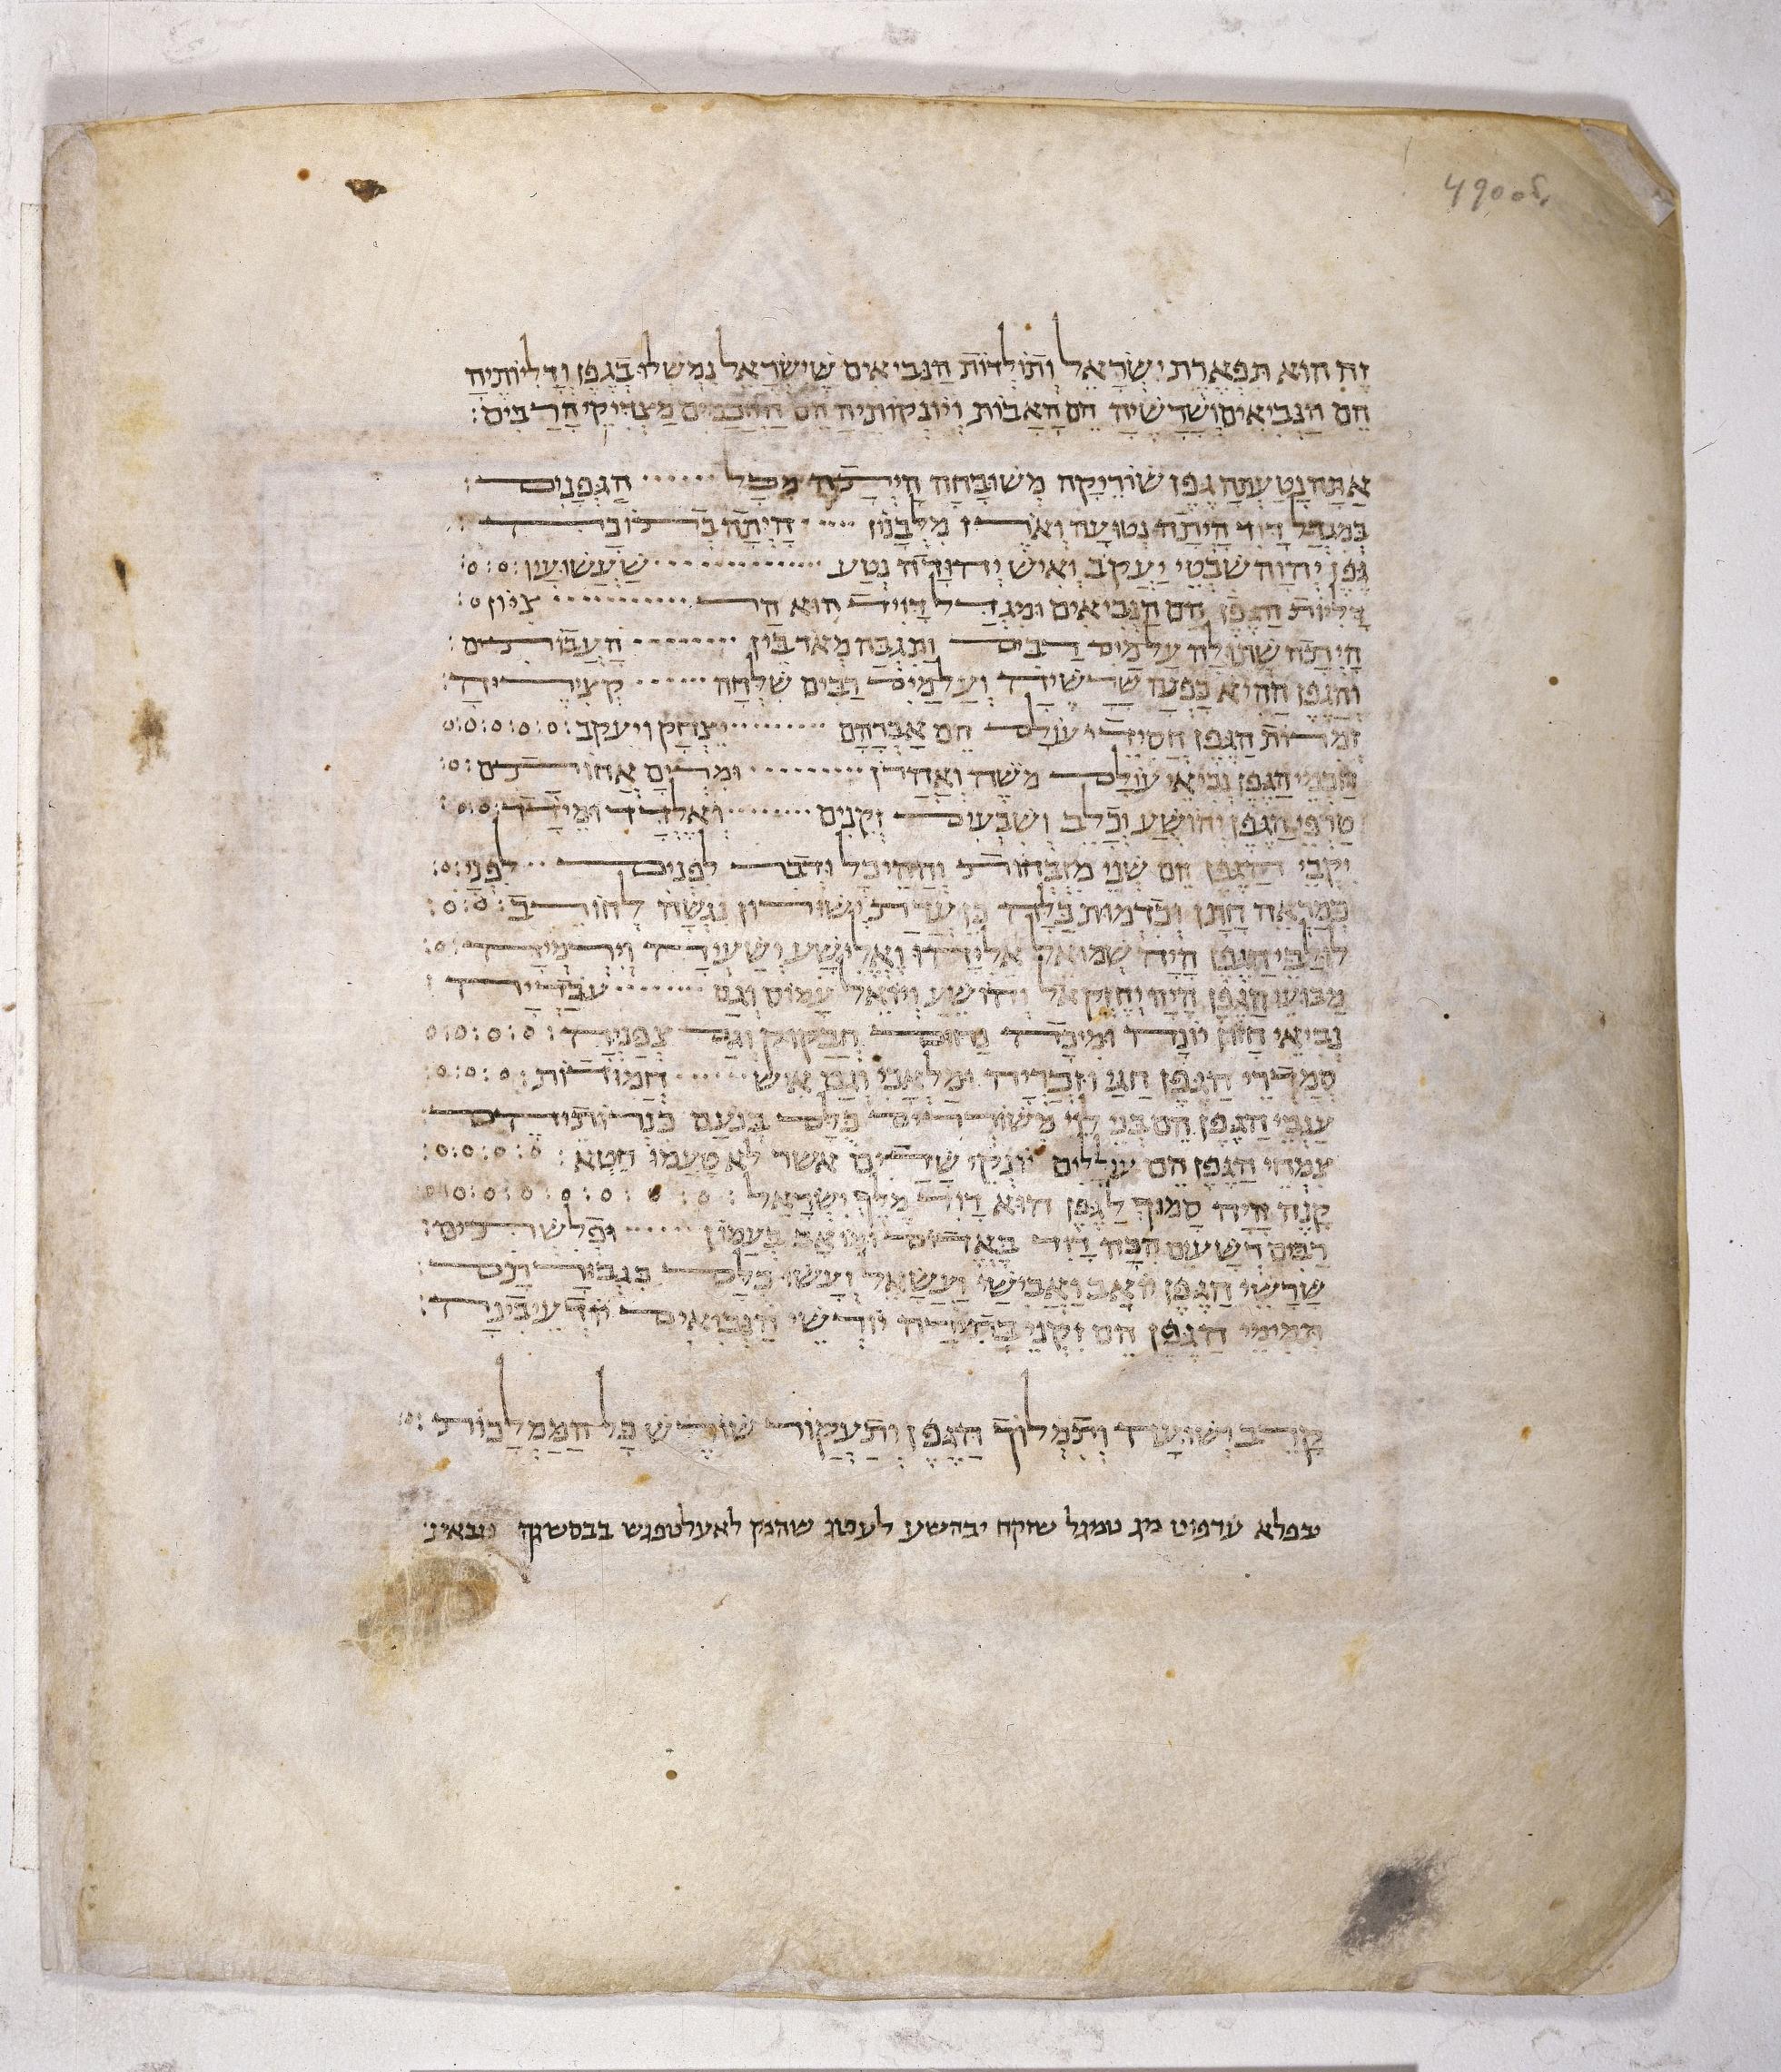 490 об.
זה הוא תפארת ישראל ותולדות הנביאים שישראל נמשלו בגפן ודליותיה
הם הנביאים ושרשיה הם האבות ויונקותיה הם החכמים מצדיקי הרבים :
אתה נטעתה גפן שוריקה משובחה היתה מכל הגפנים :
במגדל דוד היתה נטועה וארז מלבנון היתה ברלוברד
גפן יהוה שבטי יעקב ואיש יהודה נטע שעשועין
דליות הגפן הם הנביאים ומגדל דויד הוא הר ציון
היתה שתולה על מים רבים ותגבה מאד בין העבותים :
והגפן ההיא כפנה שרשיה ועל מים רבים שלחה קציריה :
זמרות הגפן חסידי עולם הם אברהם יצחק ויעקב :
חכמי הגפן נביאי עולם משה ואהרן ומרים אחותם :
טרפי הגפן יהושע וכלב ושבעים זקנים ואלדד ומידד :
יקבי הגפן הם שני מזבחות וההיכל ודבר לפנים לפני :
כמראה חתן וכדמות כלה כן עדת ישורון נגשה לחורב :
לולבי הגפן היה שמואל אליהו ואלישע ישעיה וירמיה
מבועי הגפן היה יחזקאל והושע ויואל עמוס וגם עבדיה :
נביאי חזון יונה ומיכה נחום חבקוק וגם צפניה :
סמדרי הגפן חגי וזכריה ומלאכי וגם איש חמודות :
ענבי הגפן הם בני לוי משוררים כלם בנעם כנרותיהם
צמחי הגפן הם עוללים יונקי שדים אשר לא טעמו חטא :
קנה היה סמוך לגפן הוא דויד מלך ישראל :
רבים רשעים הכה דויד באדום ומואב בעמון ופלשתים :
שרשי הגפן יואב ואבישי ועשאל ועשו כלם בגבורתם :
תמימי הגפן הם זקני בתירה יורשי הנביאים יודעי בינה :
קרב ישועה ותמלוך הגפן ותעקור שורש כל הממלכות :